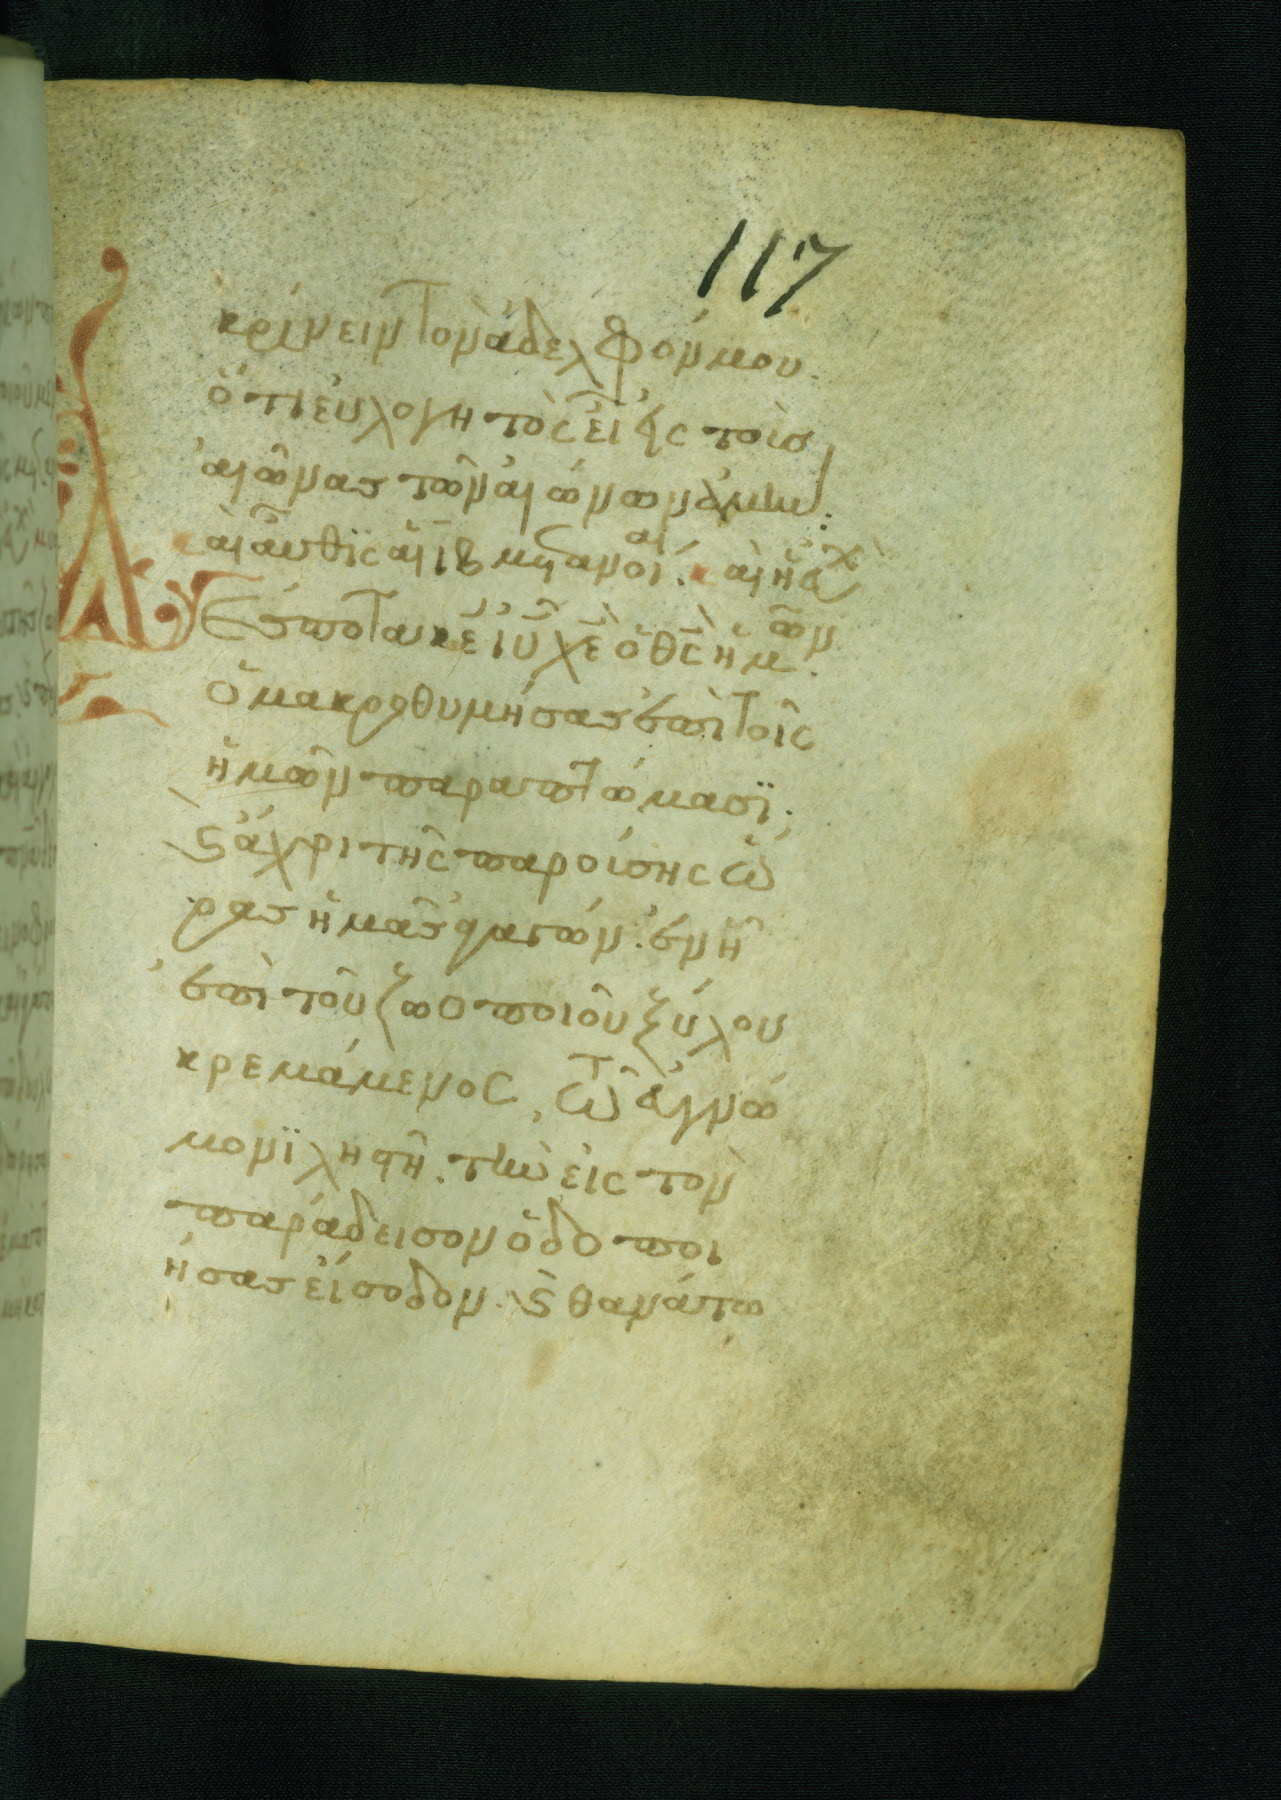 117
κρίνειν τὸν ἀδελφόν μου.
ὅτι εὐλογητὸς εἶ εἰς τοὺς
αἰῶνας τῶν αἰώνων ἀμήν:
καὶ ιβ μετάνοιαι. καὶ ἡ εὐχ
Δέσποτα κε ιυ χε ὁ θς ἡμῶν.
ὁ μακροθυμήσας ἐπὶ τοῖς
ἡμῶν παραπτώμασι,
ϗ ἄχρι τῆς παρούσης ὥ
ρας ἡμᾶς ἀγαγών. ἐν ᾗ
ἐπὶ τοῦ ζωοποιοῦ ξύλου
κρεμάμενος, τῶ εὐγνώ
μονι ληστῆ. τὴν εἰς τὸν
παράδεισον ὁδοποι
ήσας εἴσοδον. ϗ θανάτω